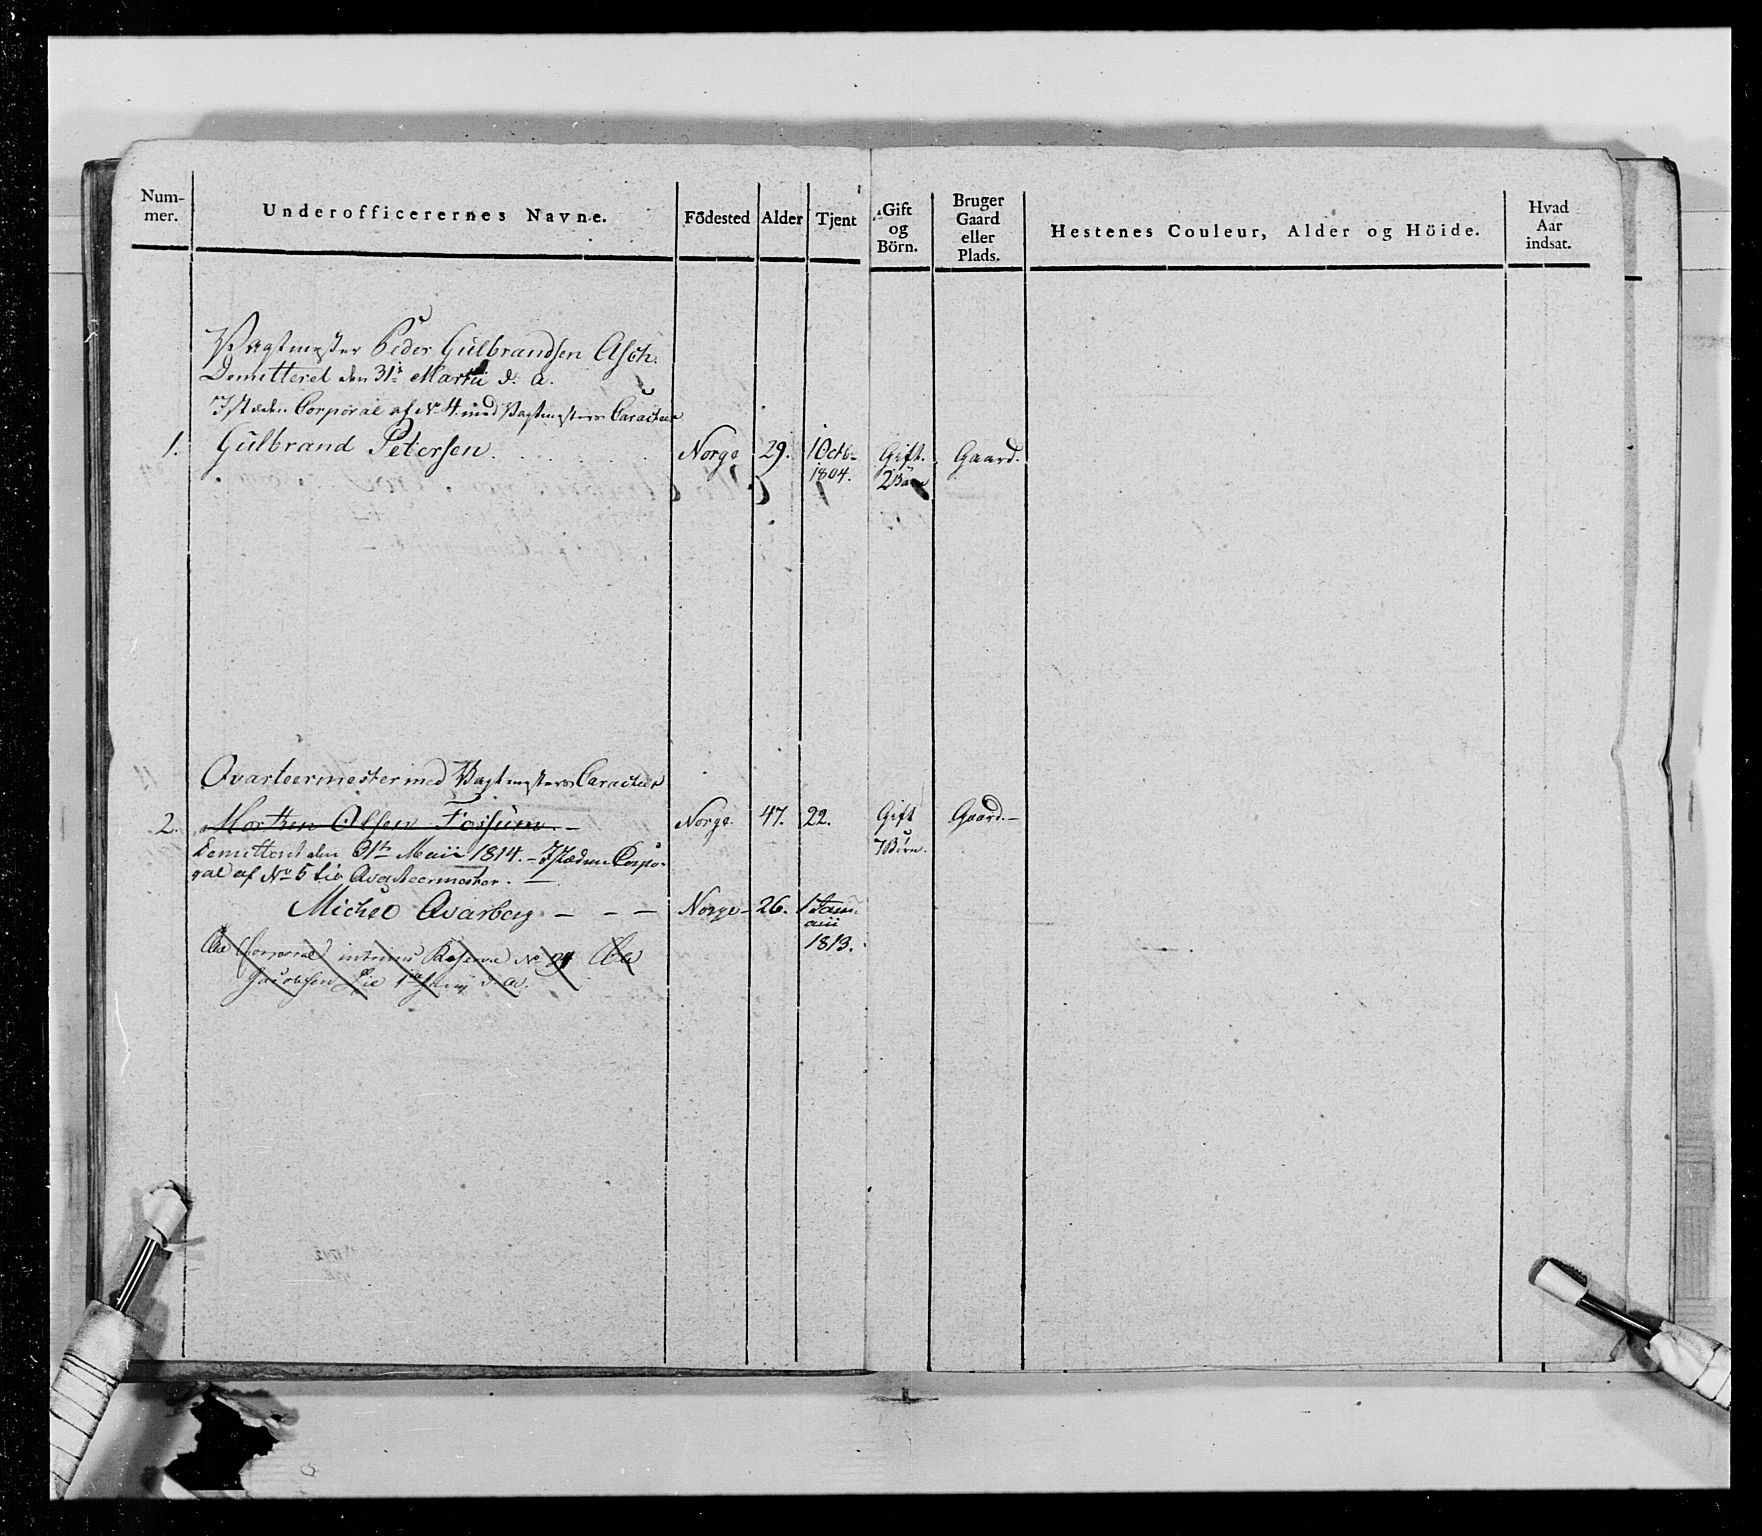 Num-
mer.
Underofficerernes Navne.
Födested
Alder
Tjent
Gift
og
Börn.
Bruger
Gaard
eller
Plads.
Hestenes Couleur, Alder og Höide.
Hvad
Aar
indsat.
Vagtmester Peder Gulbrandsen Asch.
Demitteret den 31te Martii d. a.
Istæden Corporal af No 4 med Vagtmesters Caracteer
1. Gulbrand Petersen. Norge 29. 1 Octb. Gift. Gaard.
1804. 2 Börn
Qvarteermester med Vagtmesters Caracteer
2. Morten Olsen Fossum. Norge. 47. 22. Gift Gaard.
7 Börn.
Demitteret den 31te Maii 1814. - Istæden Corpo-
ral af No 5 Qvarteermester.
Michel Qvarberg Norge 26. 1 Janu-
arii
1813.
Corporal Reserve No 24
Jacobsen d. a.